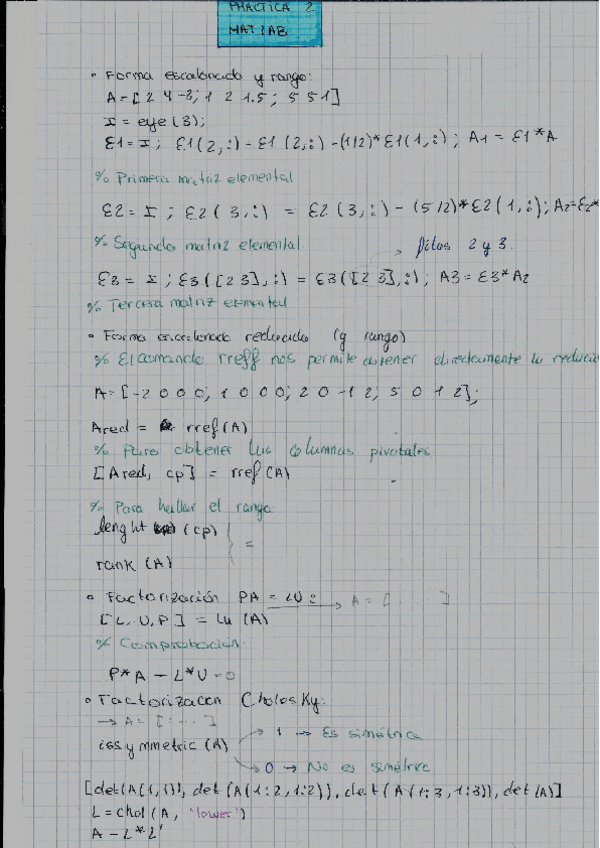 PRACTICA 2
MATLAB
• Forma escalonada y rango:
A = [2 4 -3; 1 2 1.5; 5 5 1]
I = eye (3);
E1 = I; E1(2,:) - E1 (2,:) - (1/2)* E1(1,:); A1 = E1*A
% Primera matriz elemental
E2 = I; E2(3,:) = E2(3,:) - (5/2)*E2(1,:); A2=E2*
% Segunda matriz elemental.
filas 2 y 3.
E3 = I; E3([2 3],:) = E3([2 3],:); A3 = E3*A2
% Tercera matriz elemental
• Forma escalonada reducida (y rango)
% El comando rreff nos permite obtener directamente la reducid
A = [-2 0 0 0; 1 0 0 0; 2 0 -1 2; 5 0 1 2];
Ared = rref(A)
% Para obtener las columnas pivotales
[Ared, cp] = rref(A)
% Para hallar el rango
lenght (cp)
=
rank (A)
• Factorización PA = LU: → A = [ . . . ]
[L, U, P] = Lu (A)
% Comprobación.
P*A - L*U = 0
• Factorizacion Cholosky:
→ A = [ : - . . ]
issymmetric (A)
→ 1 → Es simétrica
→ 0 → No es simétrica
[det(A(1,1)), det (A(1:2,1:2)), det (A(1:3,1:3)), det(A)]
L = chol(A, 'lower')
A - L*L'